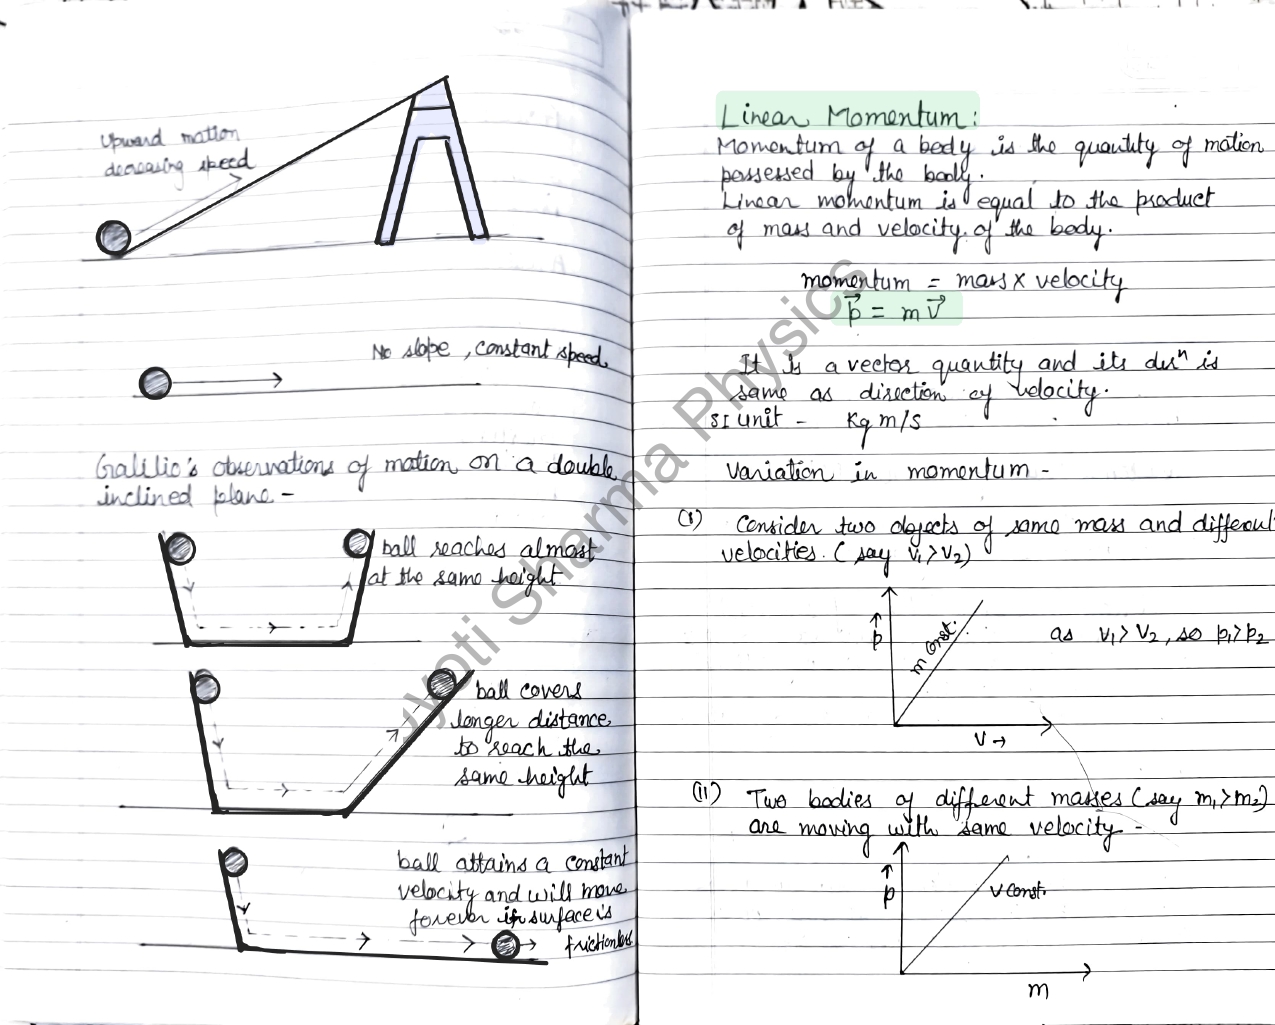 Upward motion
decreasing speed
No slope, constant speed
Galilio's observations of motion on a double
inclined plane -
ball reaches almost
at the same height
ball covers
longer distance
to reach the
same height
ball attains a constant
velocity and will move
forever if surface is
frictionless
Linear Momentum:
Momentum of a body is the quantity of motion
possessed by the body.
Linear momentum is equal to the product
of mass and velocity of the body.
momentum = mass x velocity
p⃗ = m v⃗
It is a vector quantity and its dirⁿ is
same as direction of velocity.
SI unit - Kg m/s
Variation in momentum -
(i) Consider two objects of same mass and different
velocities. (say v₁ > v₂)
p →
m const.
v →
as v₁ > v₂, so p₁ > p₂
(ii) Two bodies of different masses (say m₁ > m₂)
are moving with same velocity -
p →
v const.
m
Jyoti Sharma Physics